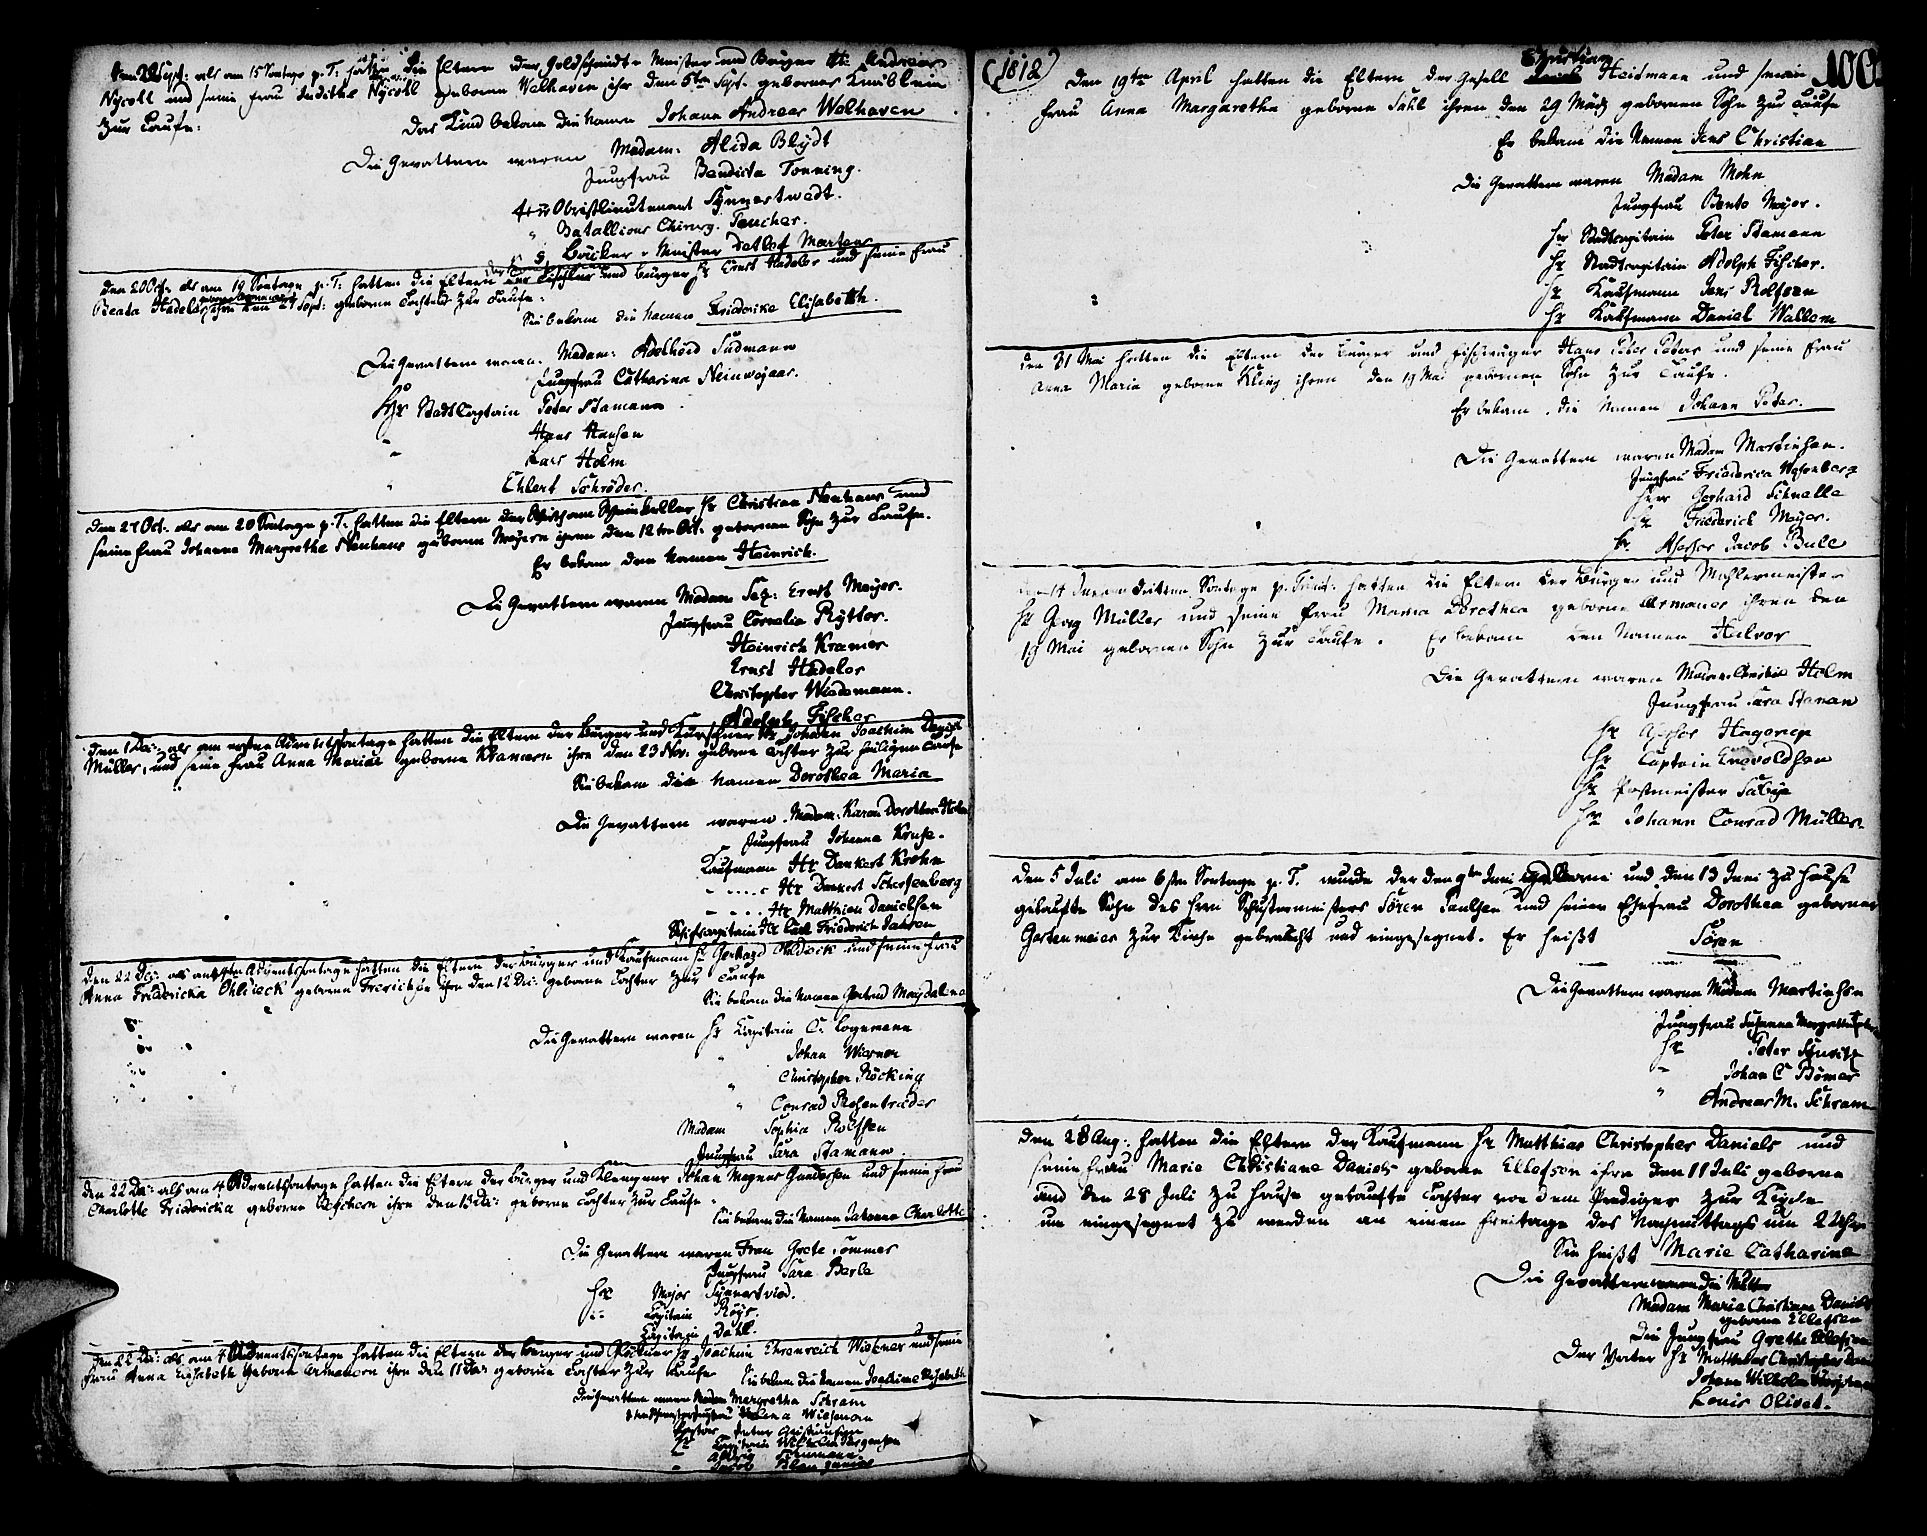 den 22 Sept: als am 15 Sontage p. T: hatten die Eltern der Goldschmidt Meister und Bürger Hr. Andreas
Nycoll und seine Frau Judithe Nycoll geborne Welhaven ihr den 5ten Sept. gebornes Knäblein
zur Taufe:
Das Kind bekam die Namen Johann Andreas Welhaven
Die Gevattern waren Madam: Alida Blydt
Jungfrau Bendicta Tonning.
Hr Obristlieutenant Synnestwedt.
" Batallions Chirurg. Teucher.
" Bäcker-Meister Detlef Martens
den 20 Oct. als am 19 Sontage p. T: hatten die Eltern der Tischler und Bürger Hr Ernst Hadeler und seine Frau
Beata Hadeler ihre den 27 Sept: geborne Tochter zur Taufe:
Sie bekam die Namen Friederike Elisabeth.
Die Gevattern waren. Madam: Adelheid Südmann
Jungfrau Catharina Neinwojaar.
Hr Stadt Captain Peter Stamann
Hans Hansen
" Lars Holm
" Ehlert Schröder.
den 27 Oct. als am 20 Sontage p. T. hatten die Eltern der Wirth am Weinkeller Hr Christian Nenhans und
seine Frau Johanna Margrethe Nenhans geborne Meyern ihren den 12ten Oct. gebornen Sohn zur Taufe.
Er bekam den Namen Heinrich.
Die Gevattern waren Madam Sel: Ernst Meyer.
Jungfrau Cornelia Rytter.
Heinrich Kramer
Ernst Hadeler
Christopher Wiedemann.
Adolph Fischer
den 1 Dec: als am ersten Adventssontage hatten die Eltern der Bürger und Kürschner Hr Johann Joachim Daniel
Müller, und seine Frau Anna Maria geborne Kramern ihre den 23 Nov. geborne Tochter zur heiligen Taufe
Sie bekam die Namen Dorothea Maria
Die Gevattern waren. Madam: Karen Dorothea Holm
Jungfrau Johanna Kruse.
Kaufmann Hr Dankert Krohn
- - - - Hr Dankert Scherfenberg
- - - - Hr Matthias Danielsen
Schifscapitain Hr Carl Friederich Jahren
den 22 Dec: als am 4ten Adventssontage hatten die Eltern der Bürger und Kaufmann Hr Gerhard Ohldieck und seine Frau
Anna Fridericka Ohldieck geborne Frerichse ihre den 12 Dec: geborne Tochter zur Taufe
Sie bekam die Namen Gertrud Magdalena
Die Gevattern waren Hr Capitain C. Logemann
" Johan Wiesner
" Christopher Röcking
" Conrad Rosentreder
Madam Sophia Rolfsen
Jungfrau Sara Stamann.
den 22 Dec: als am 4 Adventssontage hatten die Eltern der Bürger und Klempner Johan Magnus Gundersen und seine Frau
Charlotte Fridericia geborne ihre den 13 Dec: geborne Tochter zur Taufe.
Sie bekam die Namen Johanna Charlotte
Die Gevattern waren Frau Grete Sommer
Jungfrau Sara Berle
Hr Major Synnestvied.
" Capitain Röys.
Capitain Dahl.
den 22 Dec: als am 4 Adventssontage hatten die Eltern der Bürger und Glöckner Hr Joachim Ehrenreich Wiesner und seine
Frau Anna Elisabeth geborne Armauern ihre den 11 Dec geborne Tochter zur Taufe
Sie bekam die Namen Joachime Elisabeth
Die Gevattern waren Madam Margretha Schram
Jungfrau Helena Wiesener
Hr Capitain Wilhelm Jürgensen
Jacob
(1812)
100.
Christian
Den 19ten April hatten die Eltern der Gesell Heidmann und seine
Frau Anna Margaretha geborne Sahl ihren den 29 März gebornen Sohn zur Taufe
Er bekam die Namen Jens Christian
Die Gevattern waren Madam Mohn
Jungfrau Bente Meyer.
Hr Stadtcapitain Peter Stamann
Hr Stadtcapitain Adolph Fischer.
Hr Kaufmann Jens Rolfsen
Hr Kaufmann Daniel Wallem
den 31 Mai hatten die Eltern der Bürger und Hans Peter Peters und seine Frau
Anna Maria geborne Kling ihren den 19 Mai gebornen Sohn zur Taufe.
Er bekam die Namen Johann Peter.
Die Gevattern waren Madam Martinsen.
Jungfrau Friederica Wesenberg
Herr Gerhard Schnelle
Hr Friederich Meyer.
Hr. Assessor Jacob Bull
den 14 Juni am dritten Sontage p. Trinit: hatten die Eltern der Bürger und Mahlermeister
Hr Georg Müller und seine Frau Maria Dorothea geborne Armauer ihren den
19 Mai gebornen Sohn zur Taufe. Er bekam den Namen Halvor
Die Gevattern waren Madam Christine Holm
Jungfrau Sara Stamann
Hr Assessor Hagerup
Hr Captain Ingvoldsen
Hr Postmeister Sabye
Hr Johann Conrad Müller
Den 5 Juli am 6sten Sontage p. T. wurde der den 9ten Juni geborne und den 13 Juni zu Hause
getaufte Sohn des Herrn Schustermeisters Sören Paulsen und seiner Ehefrau Dorothea geborner
Gertenmeier zur Kirche gebracht und eingesegnet. Er heißt Sören
Die Gevattern waren Madam Martinsen
Jungfrau Susanna Margretha
Hr Peter
" Johan C Bömer
" Andreas M. Schram
den 28 Aug: hatten die Eltern der Kaufmann Hr Matthias Christopher Daniels und
seine Frau Marie Christiane Daniels geborne Ellefsen ihre den 11 Juli geborne
und den 28 Juli zu Hause getaufte Tochter von dem Prediger zur Kirche
um eingesegnet zu werden an einem Freitage des Nachmittags um 2 Uhr
Sie heißt Marie Catharine
Die Gevattern waren die Mutter
Madam Maria Christiane Daniels
geborne Ellefsen
Die Jungfrau Grethe Ellefsen
Der Vater Hr Matthias Christopher Daniels
Johann Wilhelm
Louis Olivet.